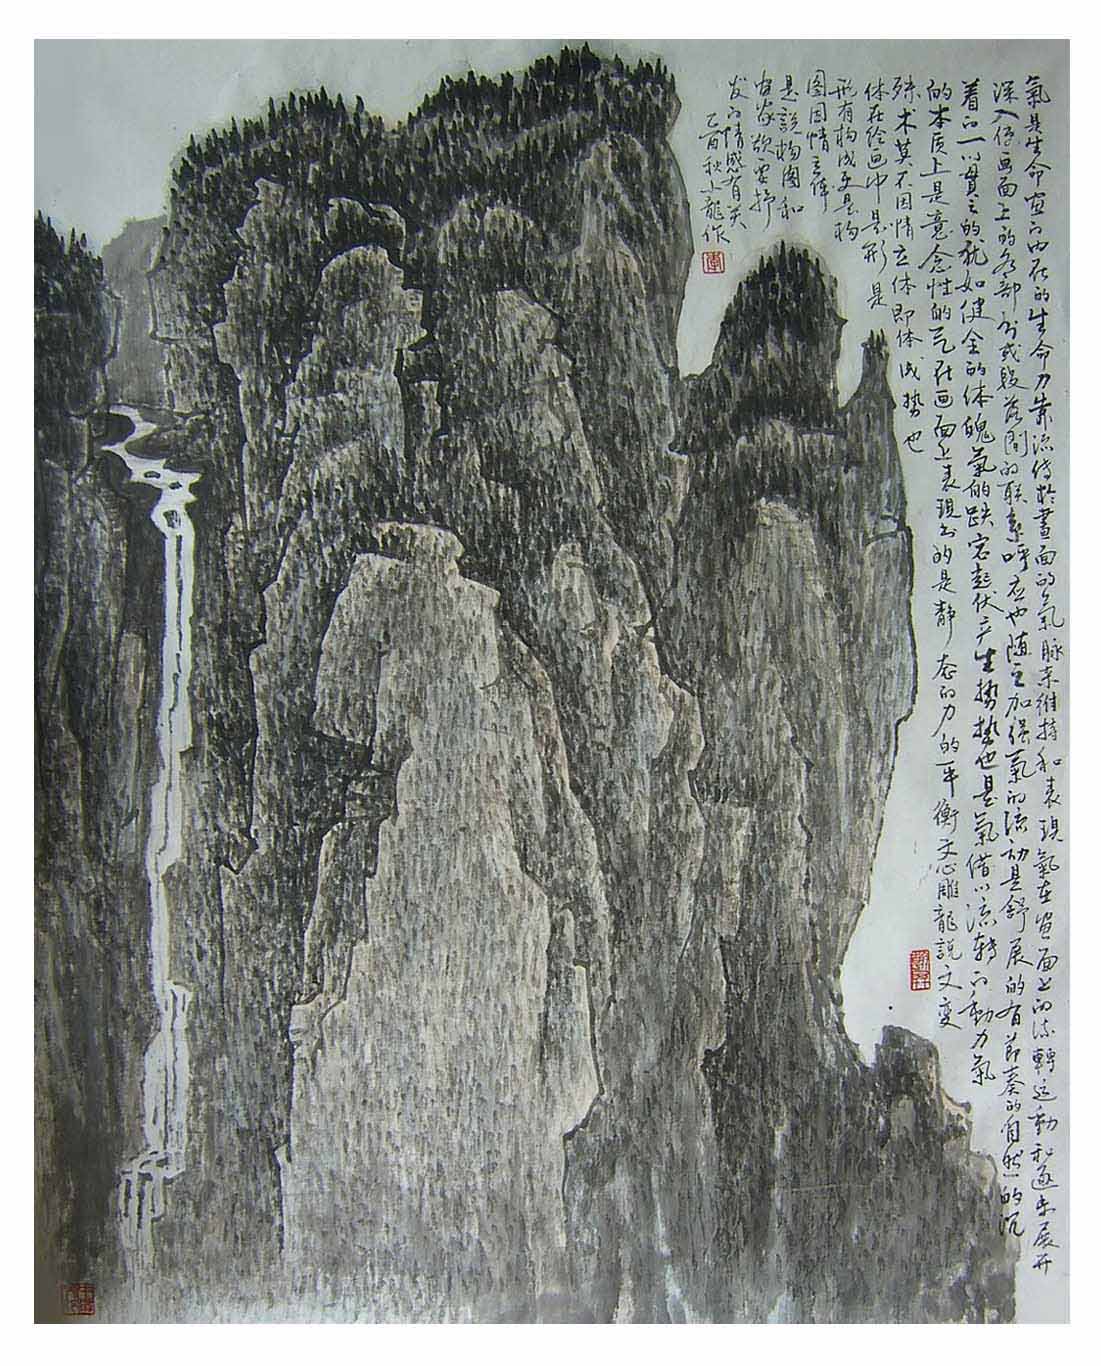 氣是生命内在的生命力靠流传於畫面的氣脉来維持和表現氣在畫面上的流轉运動和逐步展开
深入使画面上的各部分或段落間的联系呼应也随之加强氣的流动是舒展的有節奏的自然的沉
着的一以貫之的犹如健全的体魄氣的跌宕起伏产生勢勢也是氣借以流轉的動力氣
的本质上是意念性的它在画面上表現出的是静态的力的平衡文心雕龍說文变
殊术莫不因情立体即体成势也
体在绘画中是形是
形有构成更是构
图因情立体
是說构图和
畫家欲要抒
发的情感有关
乙酉秋小龍作